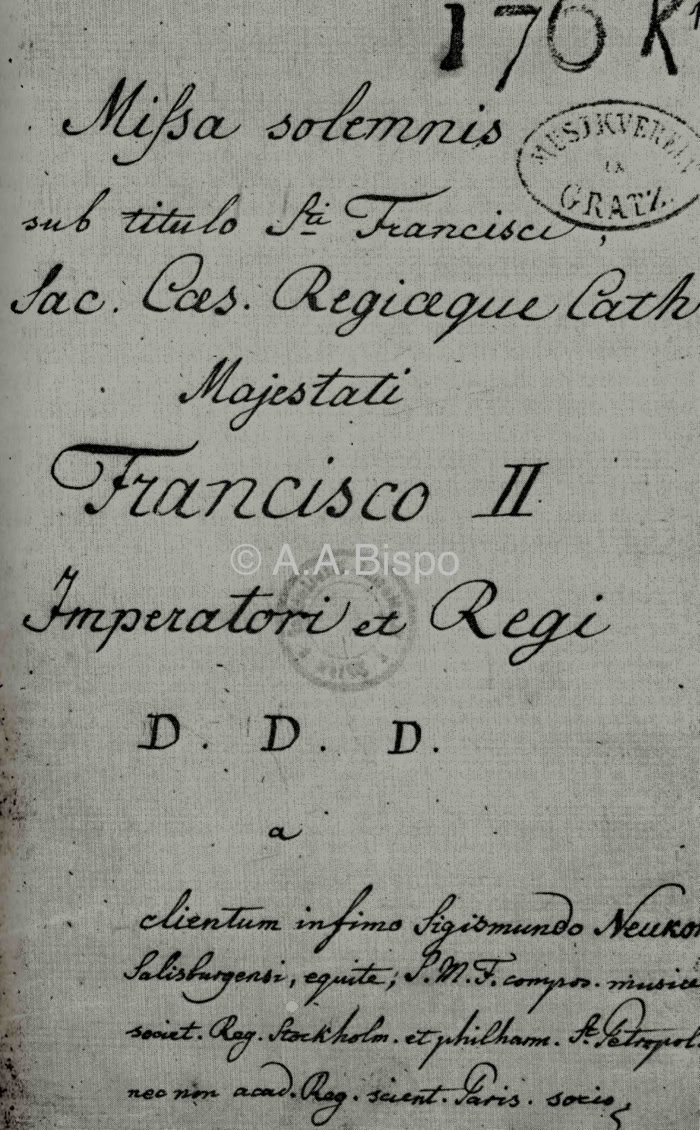 176
Missa solemnis
MUSIKVEREIN
IN
GRATZ.
sub titulo Sti Francisci,
Sac. Cæs. Regiæque Cath
Majestati
Francisco II
© A.A.Bispo
Imperatori et Regi
D. D. D.
a
clientum infimo Sigismundo Neukom
Salisburgensi, equite; S. M. F. compos. musice
societ. Reg. Stockholm. et philharm. St. Petropol.
nec non acad. Reg. scient. Paris. socio